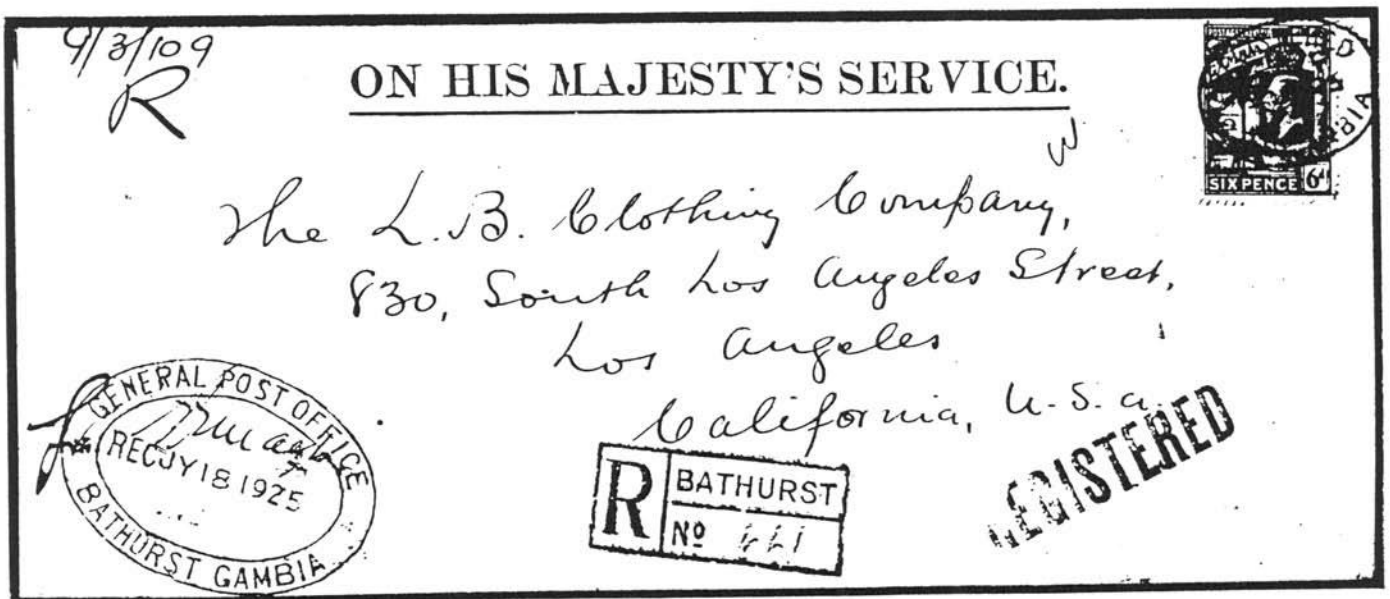 9/3/109
R
ON HIS MAJESTY'S SERVICE.
The L.B. Clothing Company,
830, South Los Angeles Street,
Los Angeles
California, U.S.A.
SIX PENCE 6d
GENERAL POST OFFICE
REC JY 18 1925
BATHURST GAMBIA
R BATHURST
No 661
REGISTERED